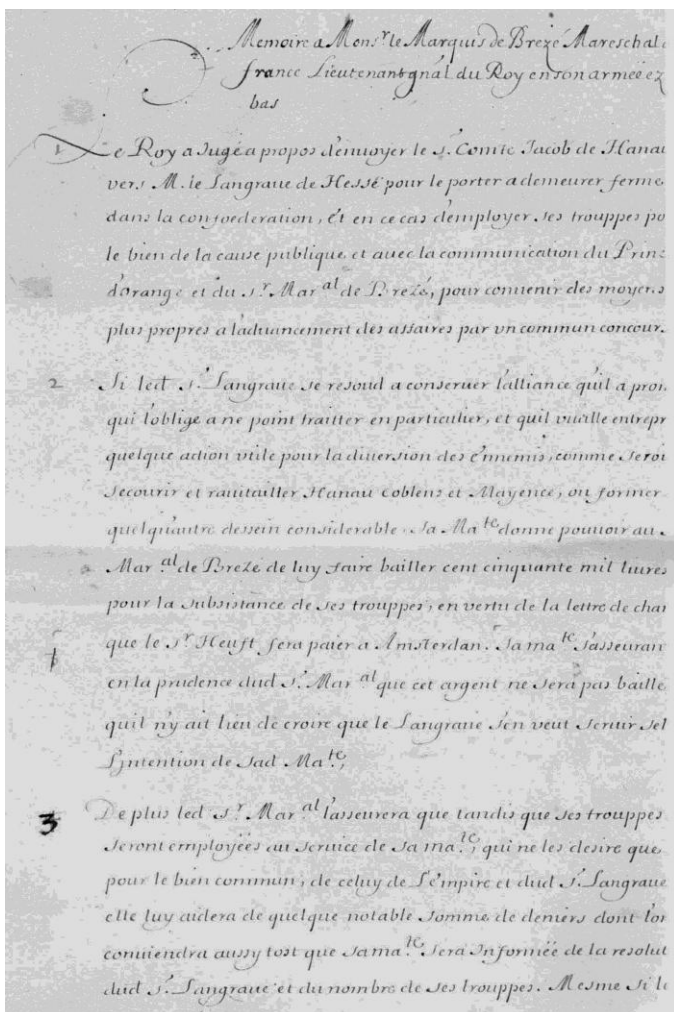 Memoire a Monsr le Marquis de Brezé Mareschal d
france Lieutenant gñal du Roy en son armée ez
bas
1 Le Roy a Jugé a propos d'enuoyer le sr. Comte Jacob de Hanau
vers M. le Langraue de Hesse pour le porter a demeurer ferme
dans la confoederation, Et en ce cas d'employer ses trouppes po
le bien de la cause publique et auec la communication du Prin
d'orange et du sr Maral de Brezé, pour conuenir des moyens
plus propres a l'aduancement des affaires par vn commun concour.
2 Si led sr. Langraue se resoud a conseruer l'alliance qu'il a prom
qui l'oblige a ne point traitter en particulier, et quil vueille entrepr
quelque action vtile pour la diuersion des Ennemis, comme seroi
secourir et rauitailler Hanau Coblens et Mayence, ou former
quelqu'autre dessein considerable. Sa Mate donne pouuoir au s
Maral de Brezé de luy faire bailler cent cinquante mil liures
pour la subsistance de ses trouppes, en vertu de la lettre de chan
que le sr Heuft fera paier a Amsterdan. Sa mate s'asseuran
en la prudence dud sr. Maral que cet argent ne sera pas baille
quil n'y ait lieu de croire que le Langraue s'en veut seruir sel
L'jntention de sad Mate,
3 De plus led sr Maral l'asseurera que tandis que ses trouppes
seront employées au seruice de sa mate, qui ne les desire que
pour le bien commun, de celuy de l'Empire et dud sr. Langraue
elle luy aidera de quelque notable somme de deniers dont l'on
conuiendra aussy tost que sa mate sera Informée de la resolut
dud sr. Langraue et du nombre de ses trouppes. Mesme si le